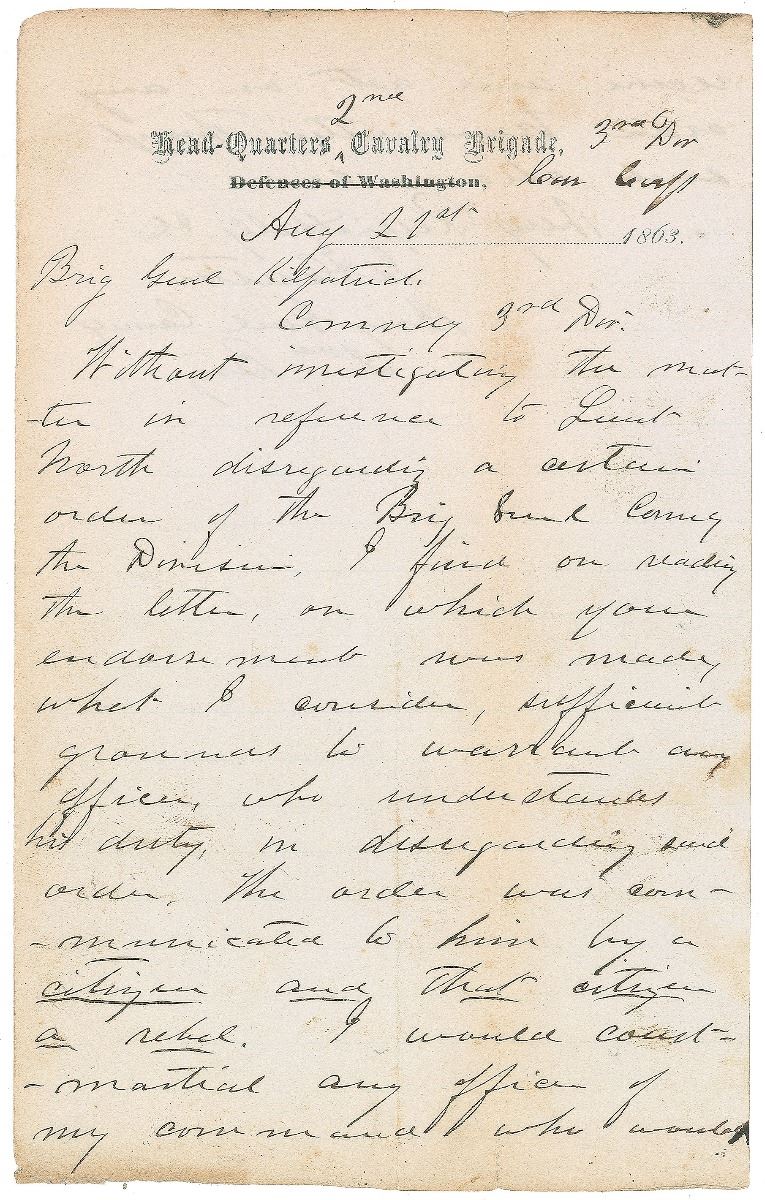 2nd
Head-Quarters ^ Cavalry Brigade, 3rd Div
Defences of Washington. Cav Corps
Aug 21st 1863.
Brig Genl Kilpatrick
Commdg 3rd Div.
Without investigating the mat-
-ter in reference to Lieut
North disregarding a certain
order of the Brig Genl Comdg
the Division, I find on reading
the letter, on which your
endorsement was made,
what I consider, sufficient
grounds to warrant any
officer, who understands
his duty, in disregarding said
order. The order was com-
-municated to him by a
citizen and that citizen
a rebel. I would court-
-martial any officer of
my command who would